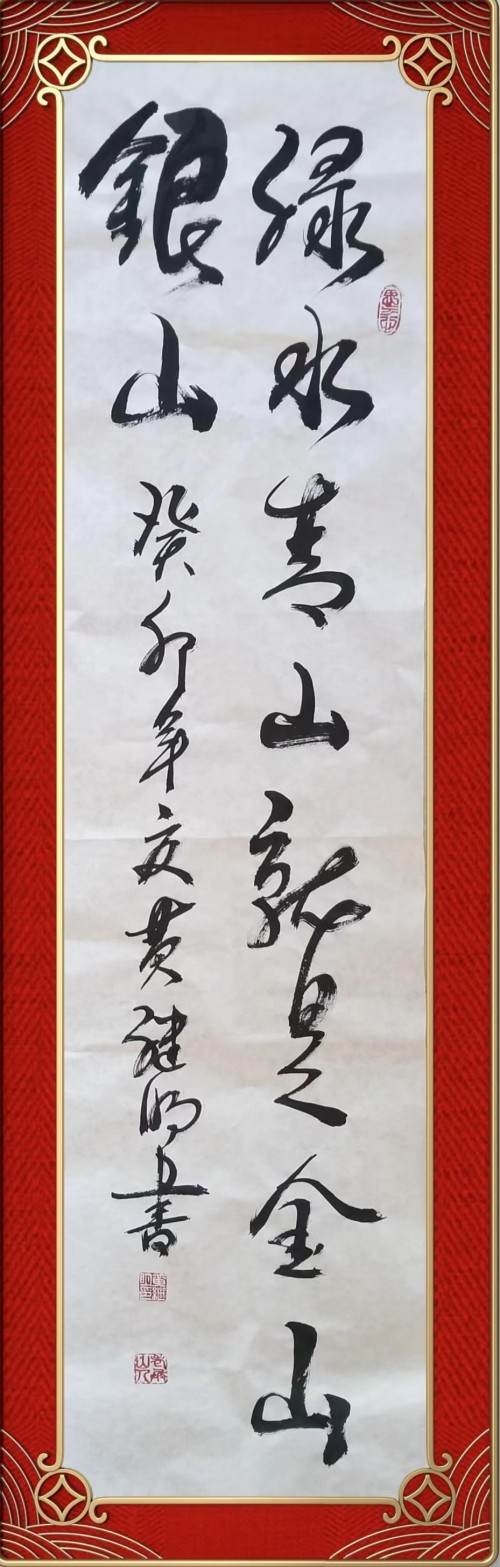 绿水青山就是金山
銀山
癸卯年夏黄明書